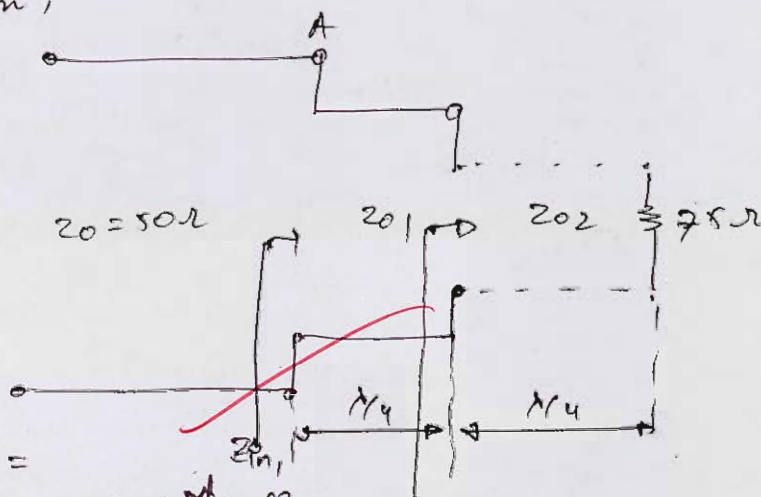 A
Z0 = 50Ω Z01 Z02 75Ω
λ/4 λ/4
=
Zin,